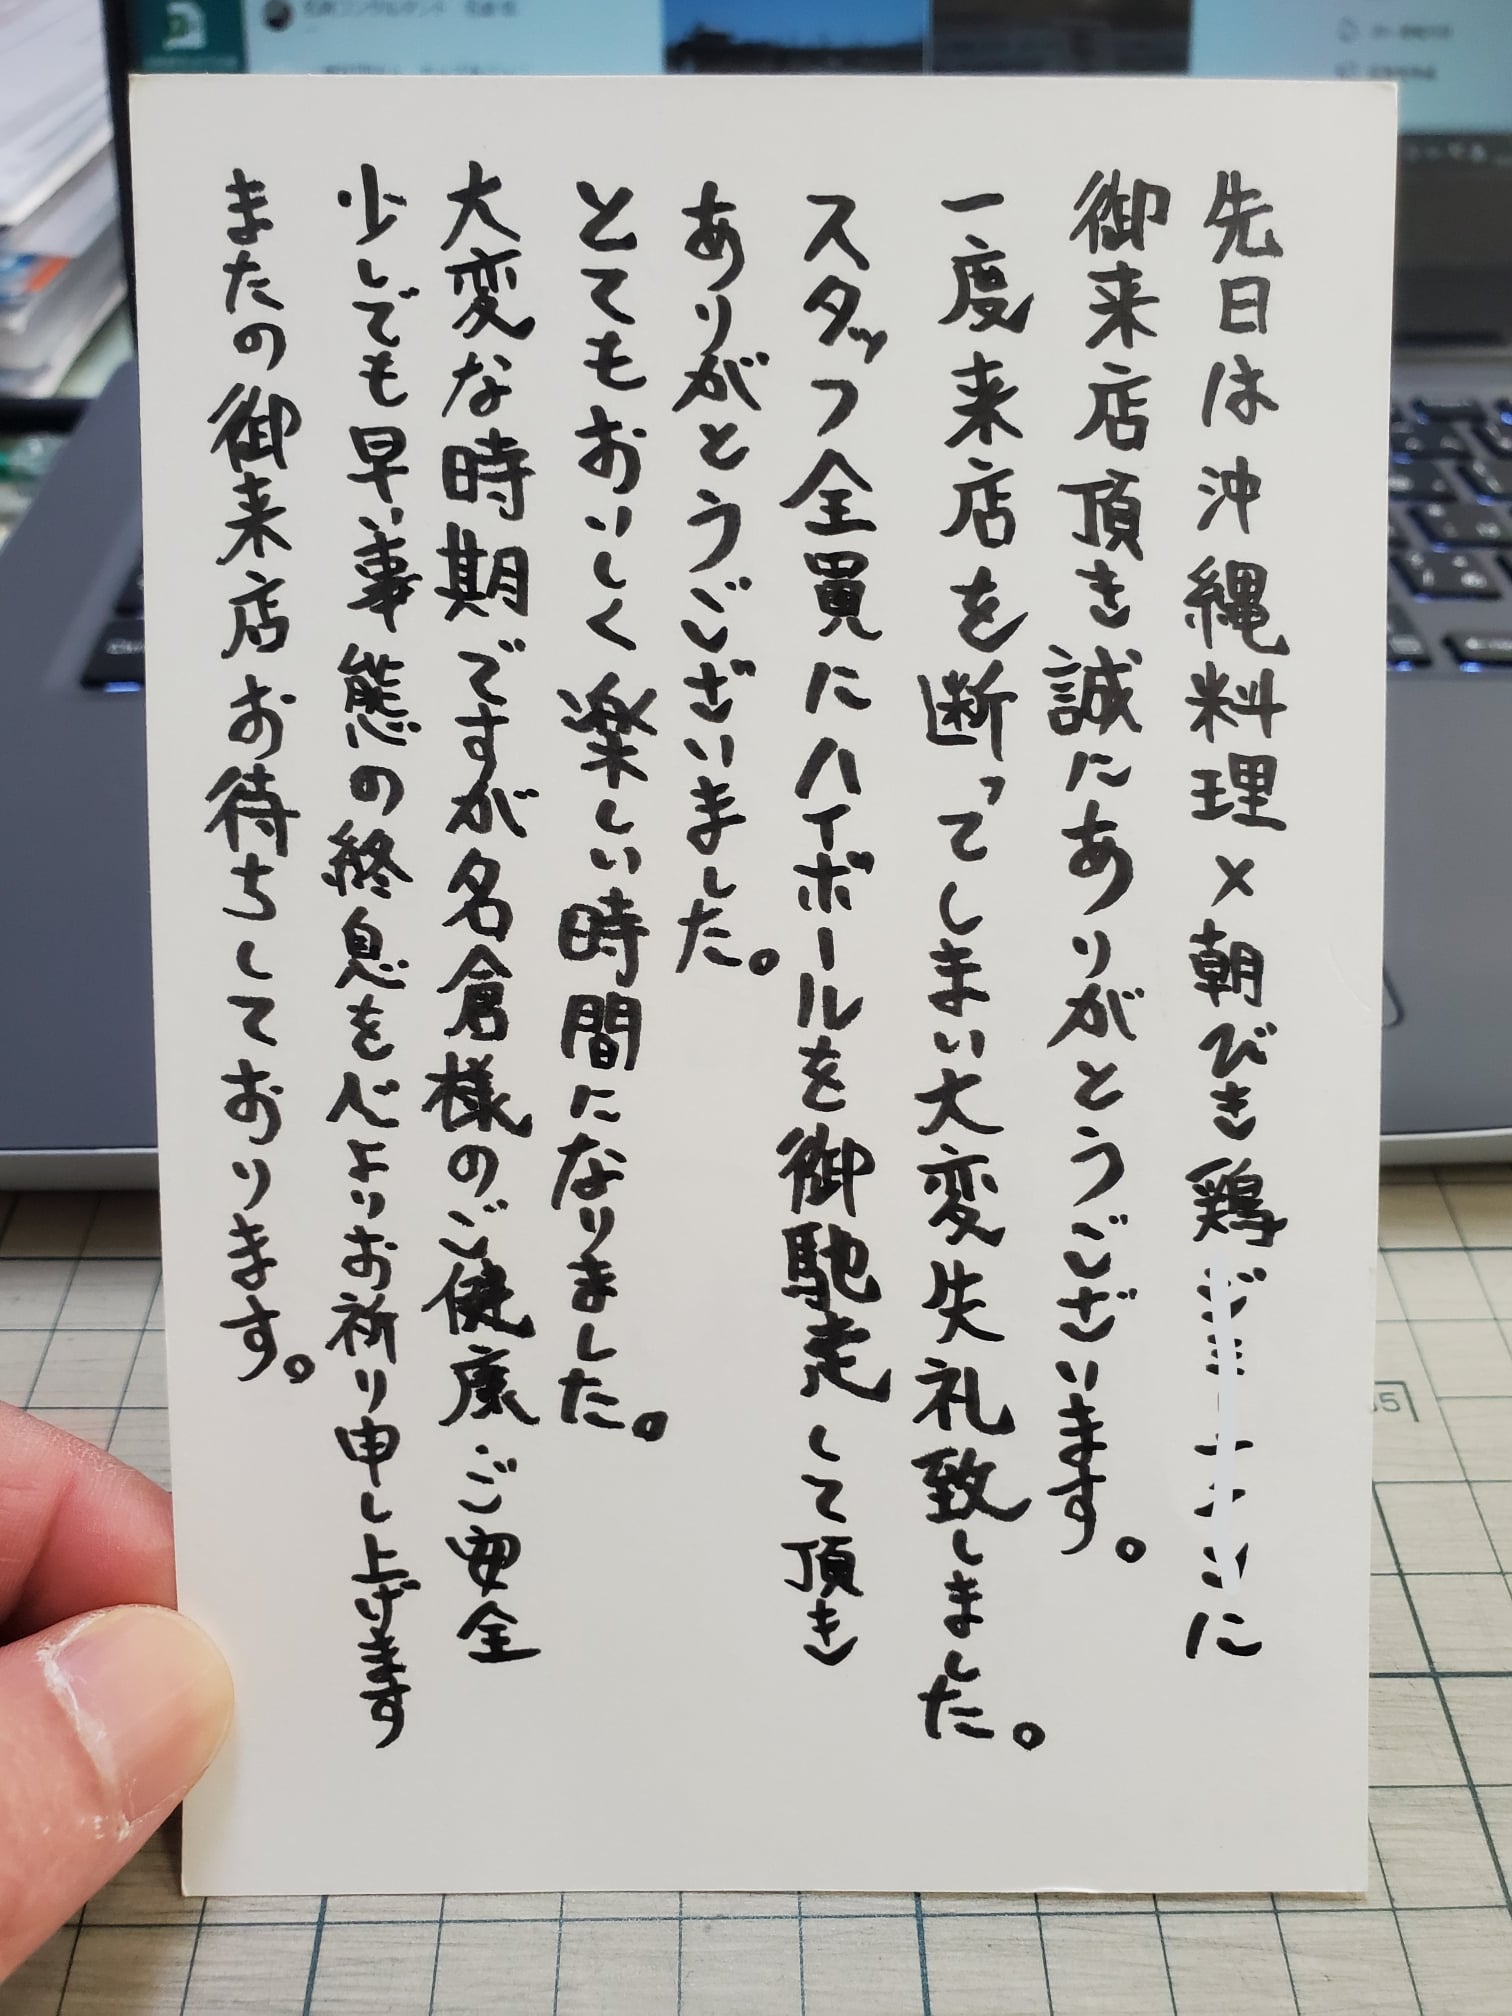 先日は沖縄料理×朝びき鶏に
御来店頂き誠にありがとうございます。
一度来店を断ってしまい大変失礼致しました。
スタッフ全員にハイボールを御馳走して頂き
ありがとうございました。
とてもおいしく楽しい時間になりました。
大変な時期ですが名倉様のご健康ご安全
少しでも早い事態の終息を心よりお祈り申し上げます
またの御来店お待ちしております。